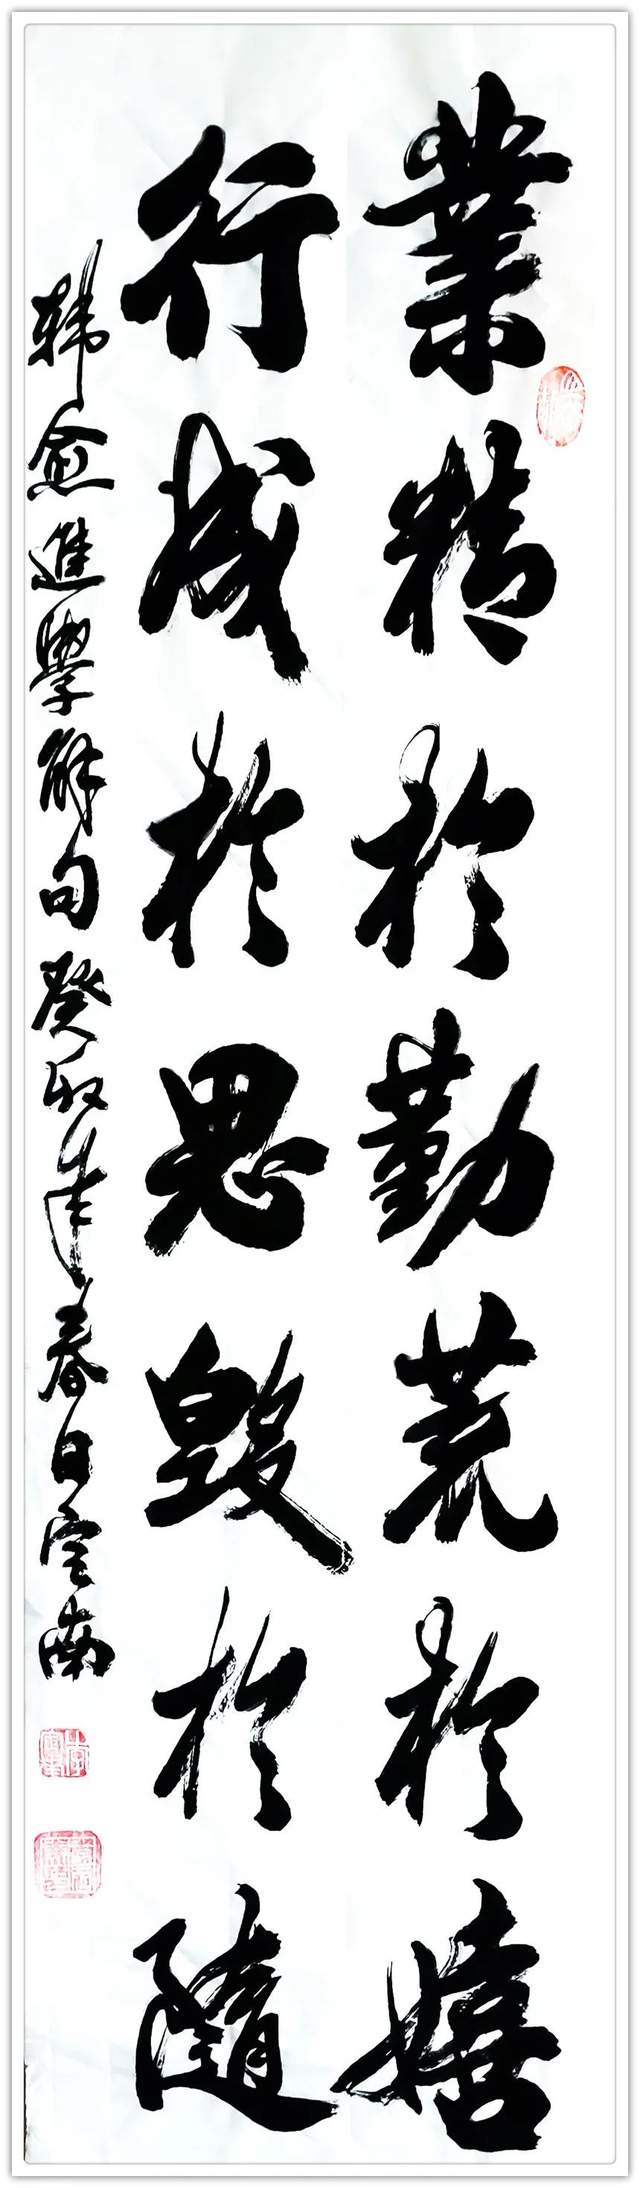 業精於勤荒於嬉
行成於思毀於隨
韩愈進學解句癸卯年春日南